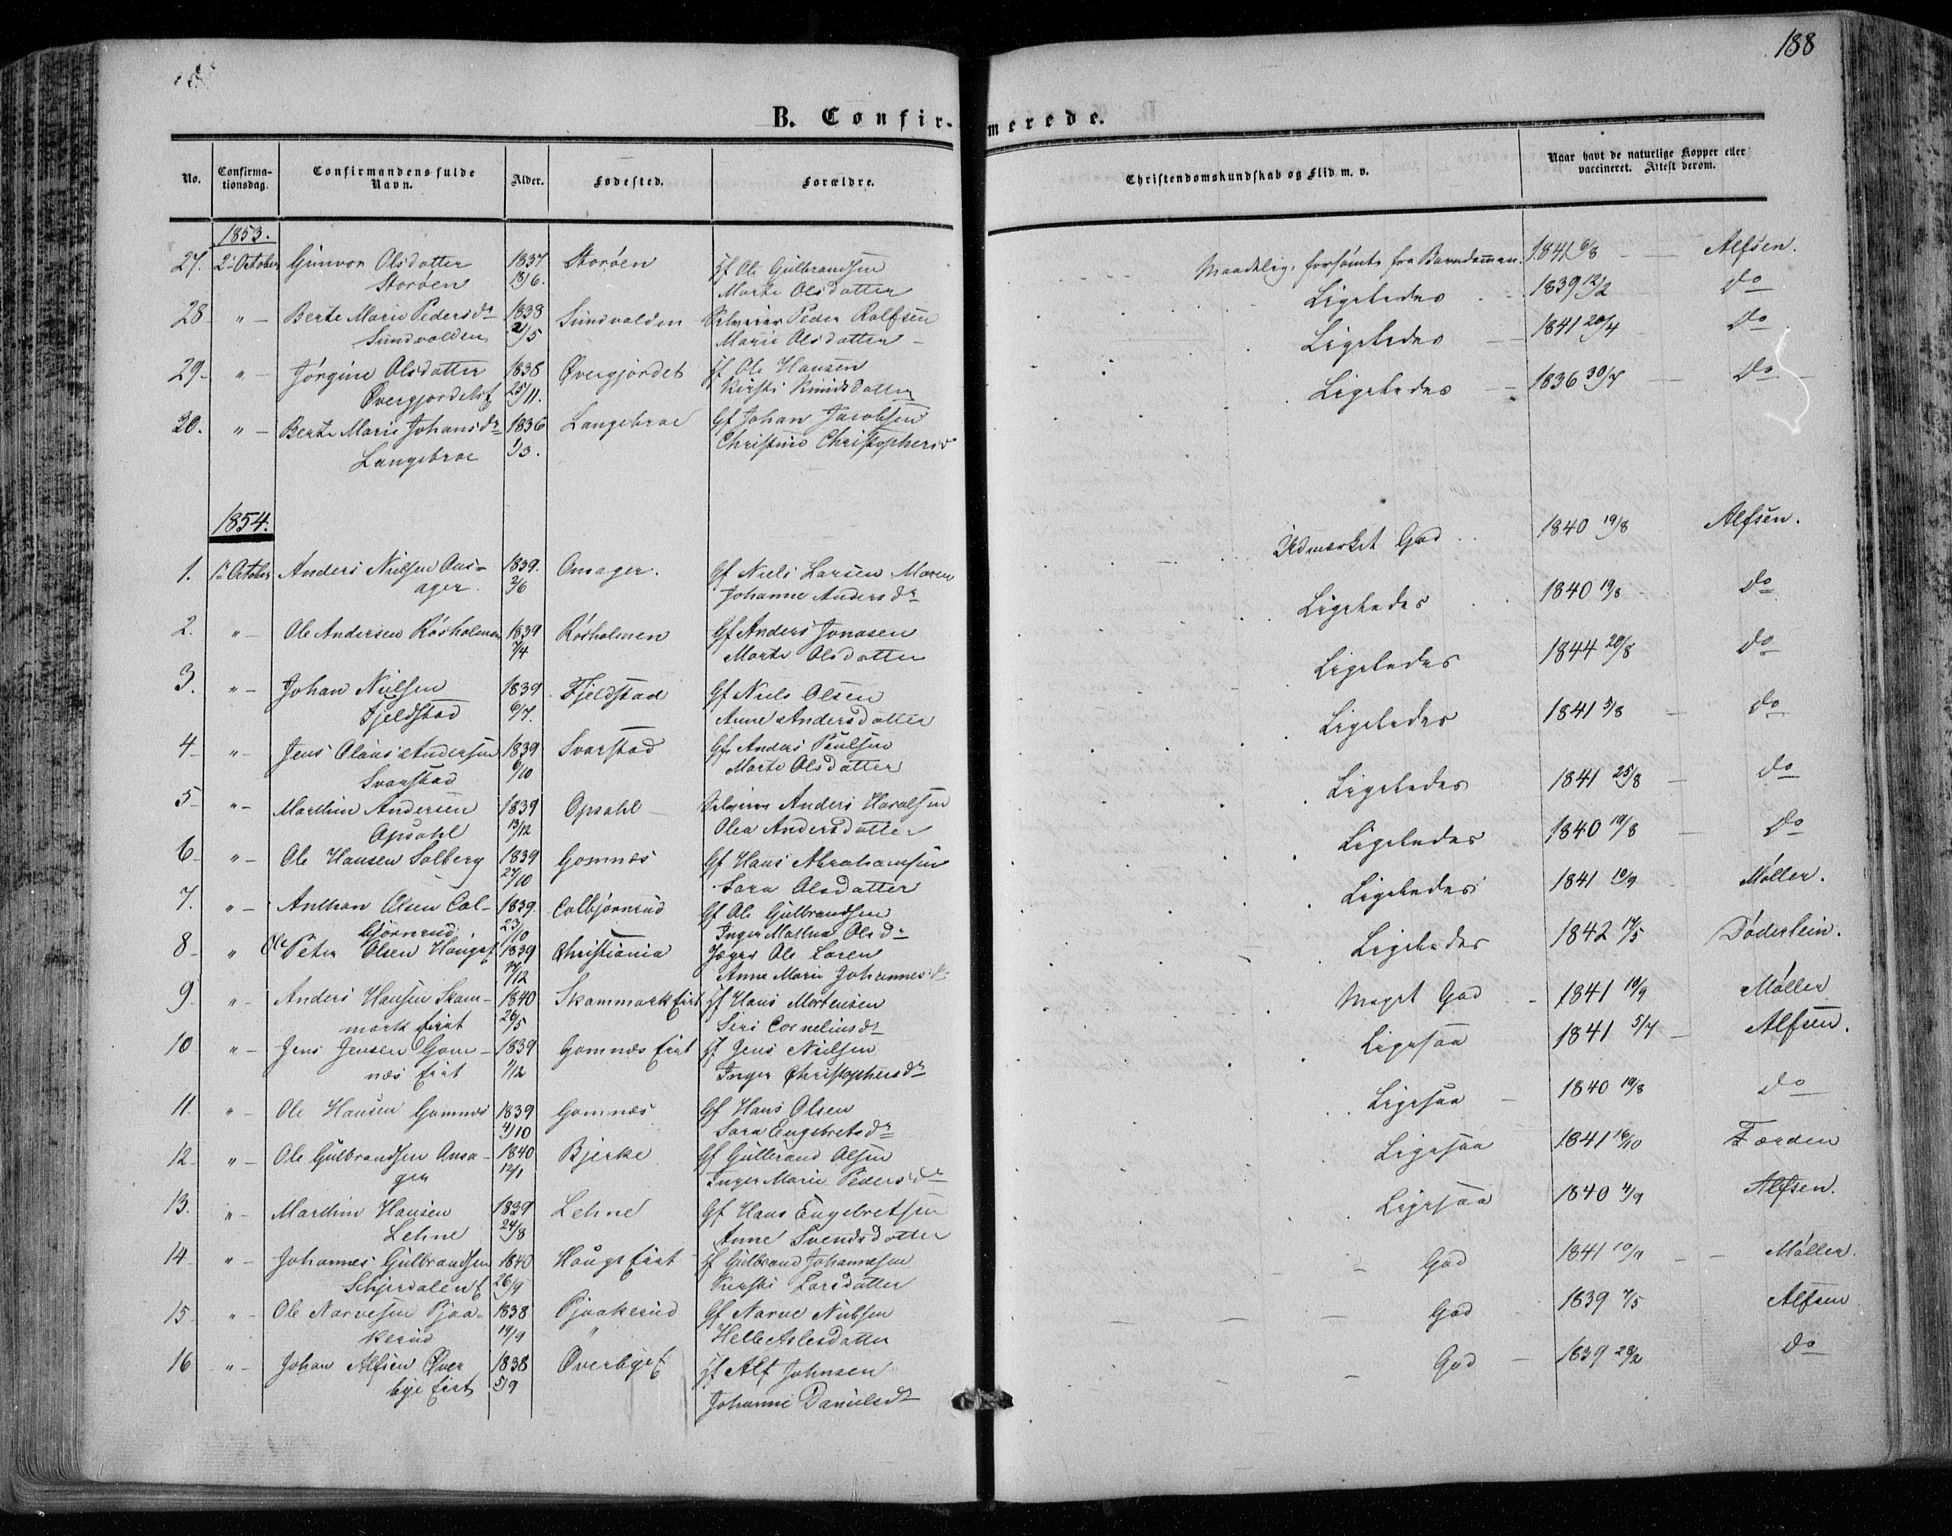 188
B. Confirmerede.
No. Confirmationsdag. Confirmandens fulde Navn. Alder. Fødested. Forældre. Christendomskundskab og Flid m. v. Naar havt de naturlige Kopper eller vaccineret. Attest derom.
1853.
27. 2 October Gunvor Olsdatter 1837 Storøen Ole Gulbrandsen Maadelig, forsømt fra Barndommen. 1841 6/8 Alfsen.
Storøen 13/6. Marte Olsdatter
28 "– Berte Marie Pedersdr 1838 Sundvolden Peder Rolfsen Ligeledes 1839 12/2 do
Sundvolden 2/5 Marie Olsdatter
29 "– Jørgine Olsdatter 1838 Øvergjordet Ole Hansen Ligeledes 1841 20/4 do
Øvergjordet 25/11. Kirsti Knudsdatter
30. "– Berte Marie Johansdr 1836 Langebroe Gf Johan Jacobsen Ligeledes 1836 30/7 do
Langebroe 1/3. Christine Christophersd
1854.
1. 1 October Anders Nielsen Ons- 1839. Onsager. Gf Niels Larsen Maren Udmærket God 1840 19/8 Alfsen.
ager. 2/6 Johanne Andersdr
2. "– Ole Andersen Røsholmen 1839 Røsholmen Gf Anders Jonasen Ligeledes 1840 19/8 do
7/4 Marte Olsdatter
3. "– Johan Nielsen 1839 Fjeldstad Gf Niels Olsen Ligeledes 1844 20/8 do
Fjeldstad 6/7. Anne Andersdatter
4. "– Jens Olaus Andersen 1839 Svarstad Gf Anders Paulsen Ligeledes 1841 3/8 do
Svarstad 6/10 Marte Olsdatter
5 "– Marthin Andersen 1839 Opsahl Anders Ligeledes 1841 25/8 do
Opsahl 13/12 Olea Andersdatter
6 "– Ole Hansen Solberg 1839 Gomnæs Gf Hans Abrahamsen Ligeledes 1840 19/8 do
27/10 Sara Olsdatter
7. "– Anthon Olsen Col- 1839. Colbjørnrud Gf Ole Gulbrandsen Ligeledes 1841 19/9 Møller.
bjørnrud 23/10 Inger Mathea Olsdr
8 " Ole Peter Olsen Houge 1839 Christiania Jæger Ole Ligeledes 1842 17/5 Døderlein.
/12 Anne Marie Johannesdr
9 "– Anders Hansen Skam- 1840 Skammark Eiet Hans Mortensen Meget God 1841 19/9 Møller
mark Eiet 26/5 Siri Corneliusdr
10 "– Jens Jensen Gom- 1839 Gomnæs Eiet Jens Nielsen Ligesaa 1841 5/7 Alfsen.
næs Eiet /12 Inger Christophersdr
11. "– Ole Hansen Gomnæs 1839 Gomnæs Gf Hans Olsen Ligesaa 1840 19/8 do
4/10 Sara Engebretsdr
12 "– Ole Gulbrandsen Onsa- 1840 Bjerke Gf Gulbrand Olsen Ligesaa 1841 16/10 Færden
ger 12/1 Inger Marie Pedersdr
13. "– Marthin Hansen 1839 Lehne Gf Hans Engebretsen Ligesaa 1840 4/9 Alfsen.
Lehne 24/8 Anne Svendsdatter
14 "– Johannes Gulbrandsen 1840 Hougs Eiet Gulbrand Johannesen God 1841 10/9 Møller.
Schjerdalen 26/9 Kirsti Larsdatter
15 "– Ole Narvesen Pjaa- 1838 Pjaakerud Gf Narve Nielsen God 1839 7/5 Alfsen
kerud 19/9 " Helle Aslesdatter
16 "– Johan Alfsen Øver- 1838 Øverbye Alf Johnsen God 1839 28/2 do
bye Eiet 5/9 Johanne Danielsdr